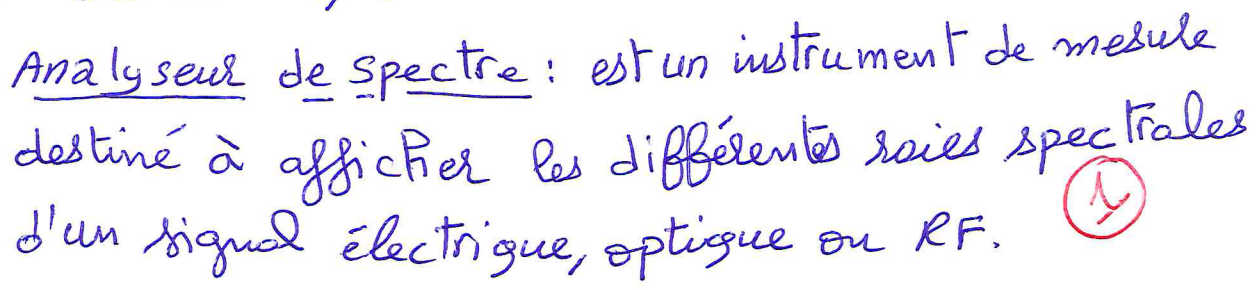 Analyseur de spectre : est un instrument de mesure
destiné à afficher les différentes raies spectrales
d'un signal électrique, optique ou RF.
1